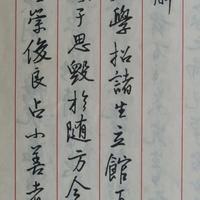 解
學招諸生立館下
于思毀於随方今
崇俊良占小善者